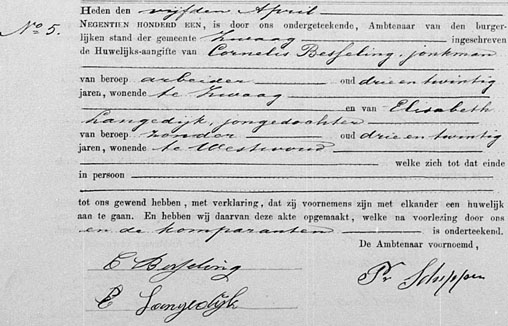 No 5.
Heden den vijfden April
NEGENTIEN HONDERD EEN, is door ons ondergeteekende, Ambtenaar van den burger-
lijken stand der gemeente Zwaag ingeschreven
de Huwelijks-aangifte van Cornelis Besseling, jonkman
van beroep arbeider oud drie en twintig
jaren, wonende te Zwaag
en van Elisabeth
Langedijk, jongedochter
van beroep zonder oud drie en twintig
jaren, wonende te Westwoud
welke zich tot dat einde
in persoon
tot ons gewend hebben, met verklaring, dat zij voornemens zijn met elkander een huwelijk
aan te gaan. En hebben wij daarvan deze akte opgemaakt, welke na voorlezing door ons
en de komparanten is onderteekend.
De Ambtenaar voornoemd,
C Besseling
Pr Schipper
E Langedijk